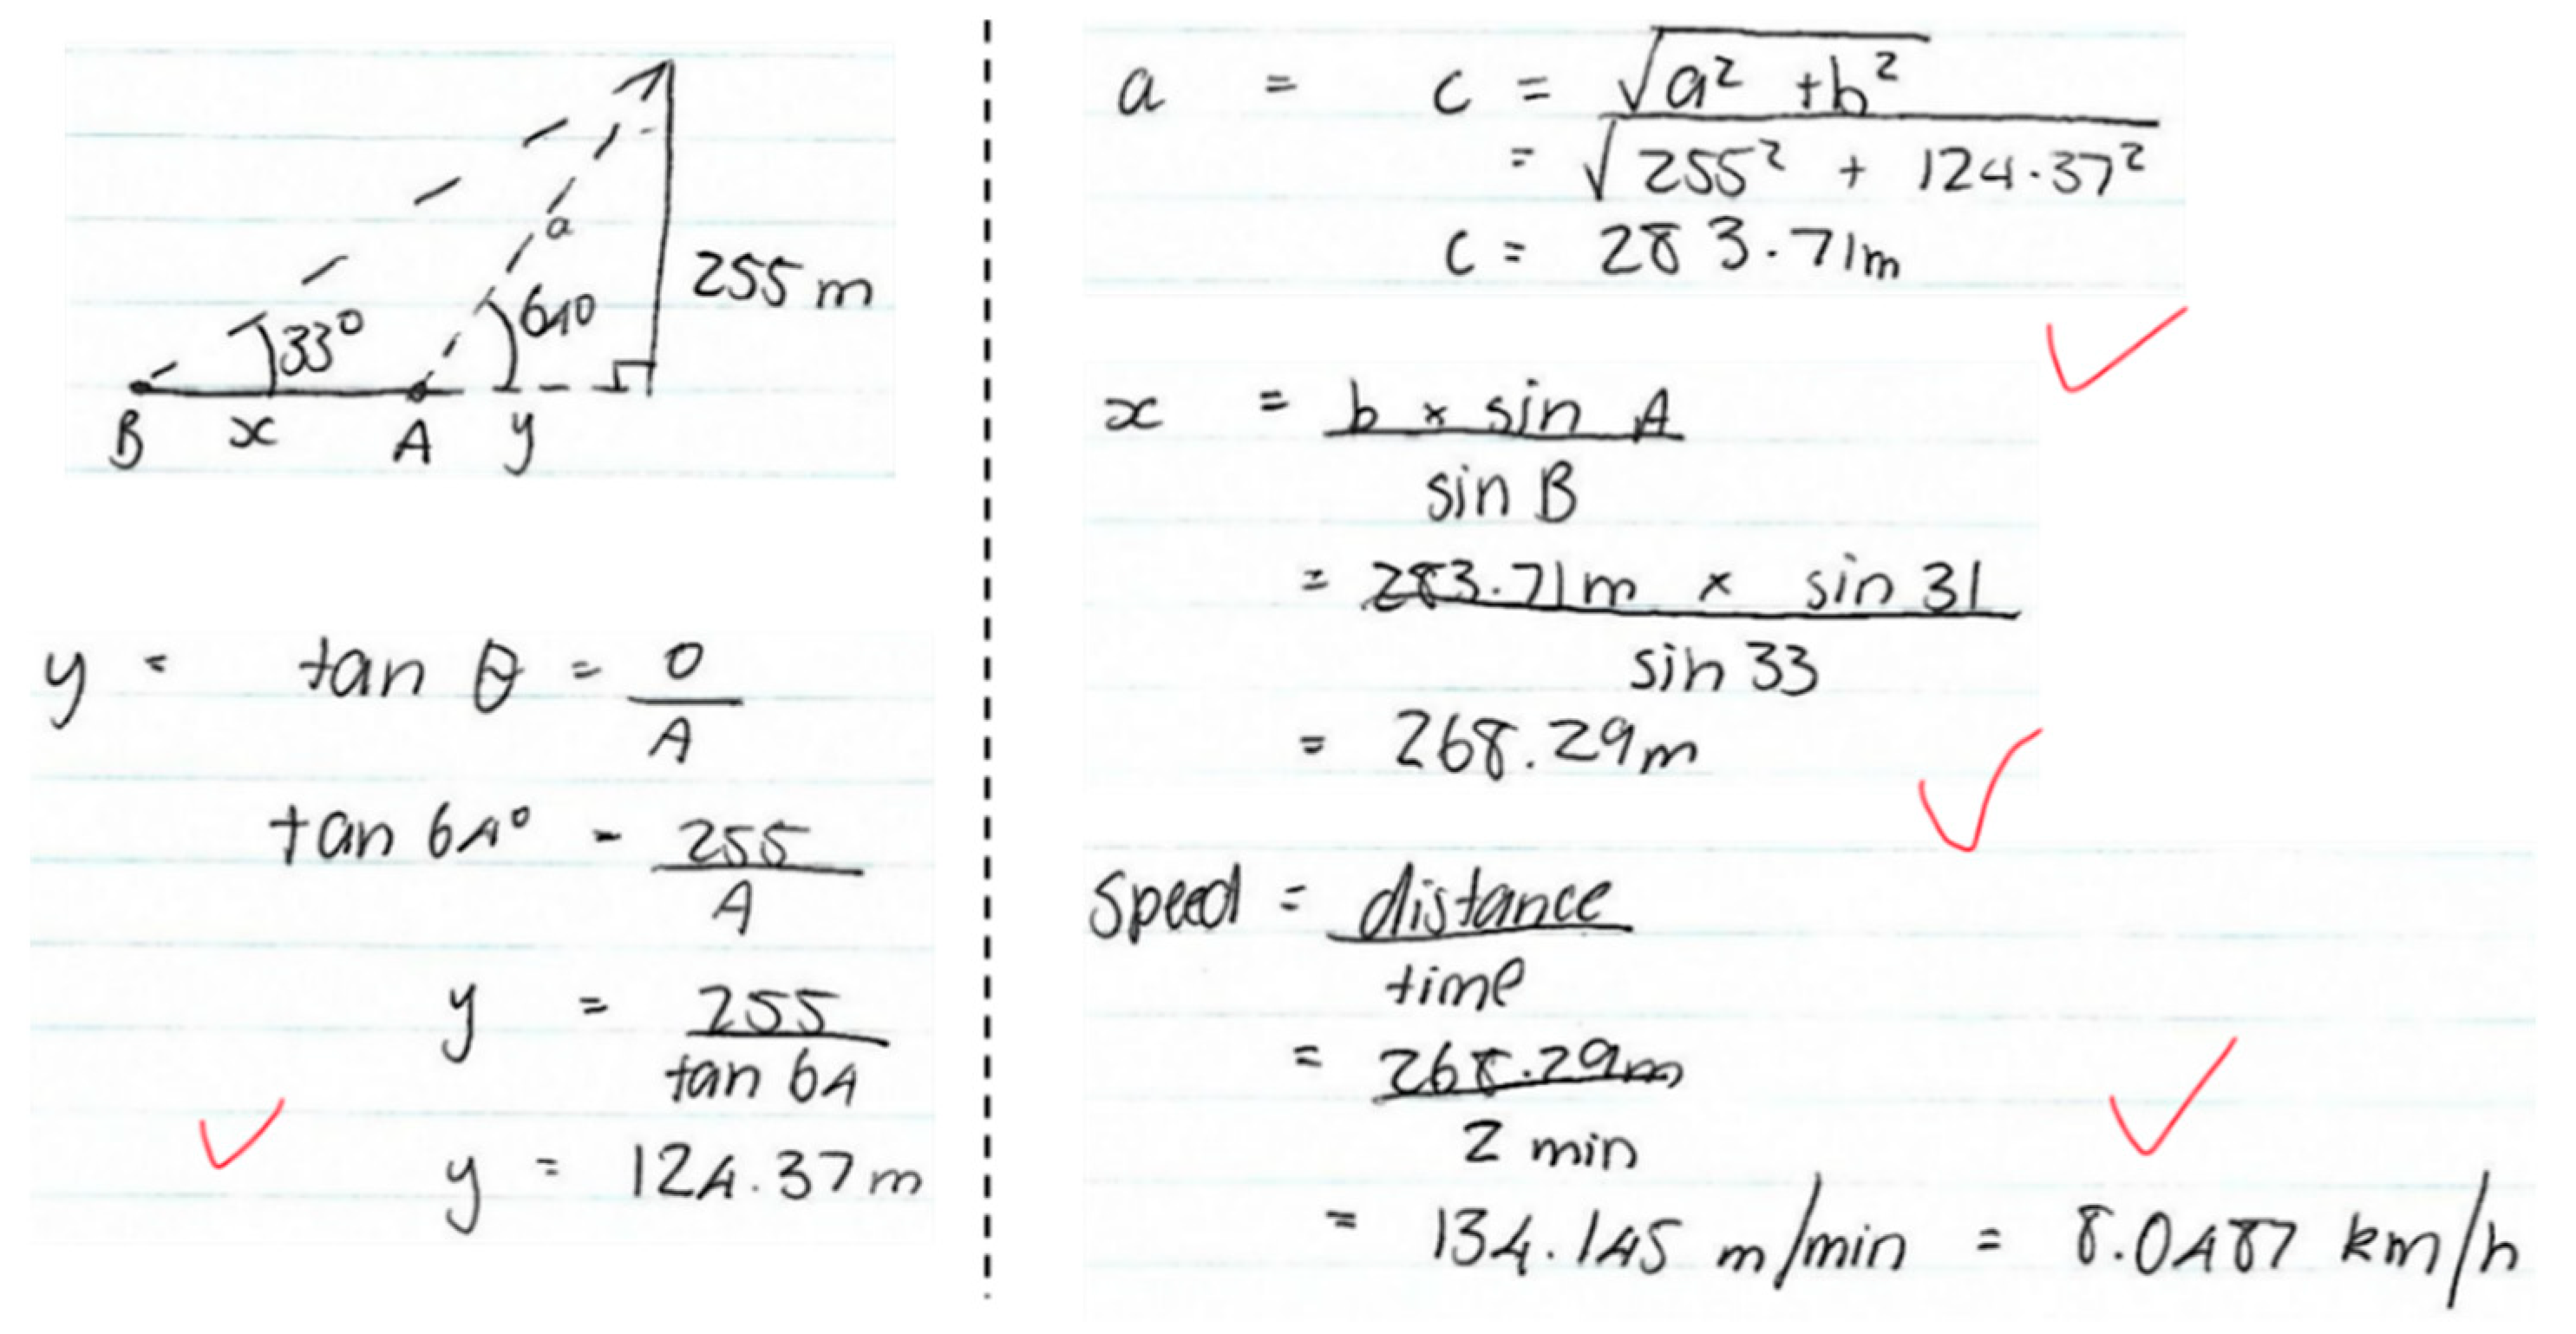 a
255 m
64°
33°
B x A y
y = tan θ = O/A
tan 64° = 255/A
y = 255/tan 64
y = 124.37 m
a = c = √a² + b²
= √255² + 124.37²
c = 283.71m
x = b × sin A/sin B
= 283.71m × sin 31/sin 33
= 268.29m
Speed = distance/time
= 268.29m/2 min
= 134.145 m/min = 8.0487 km/h